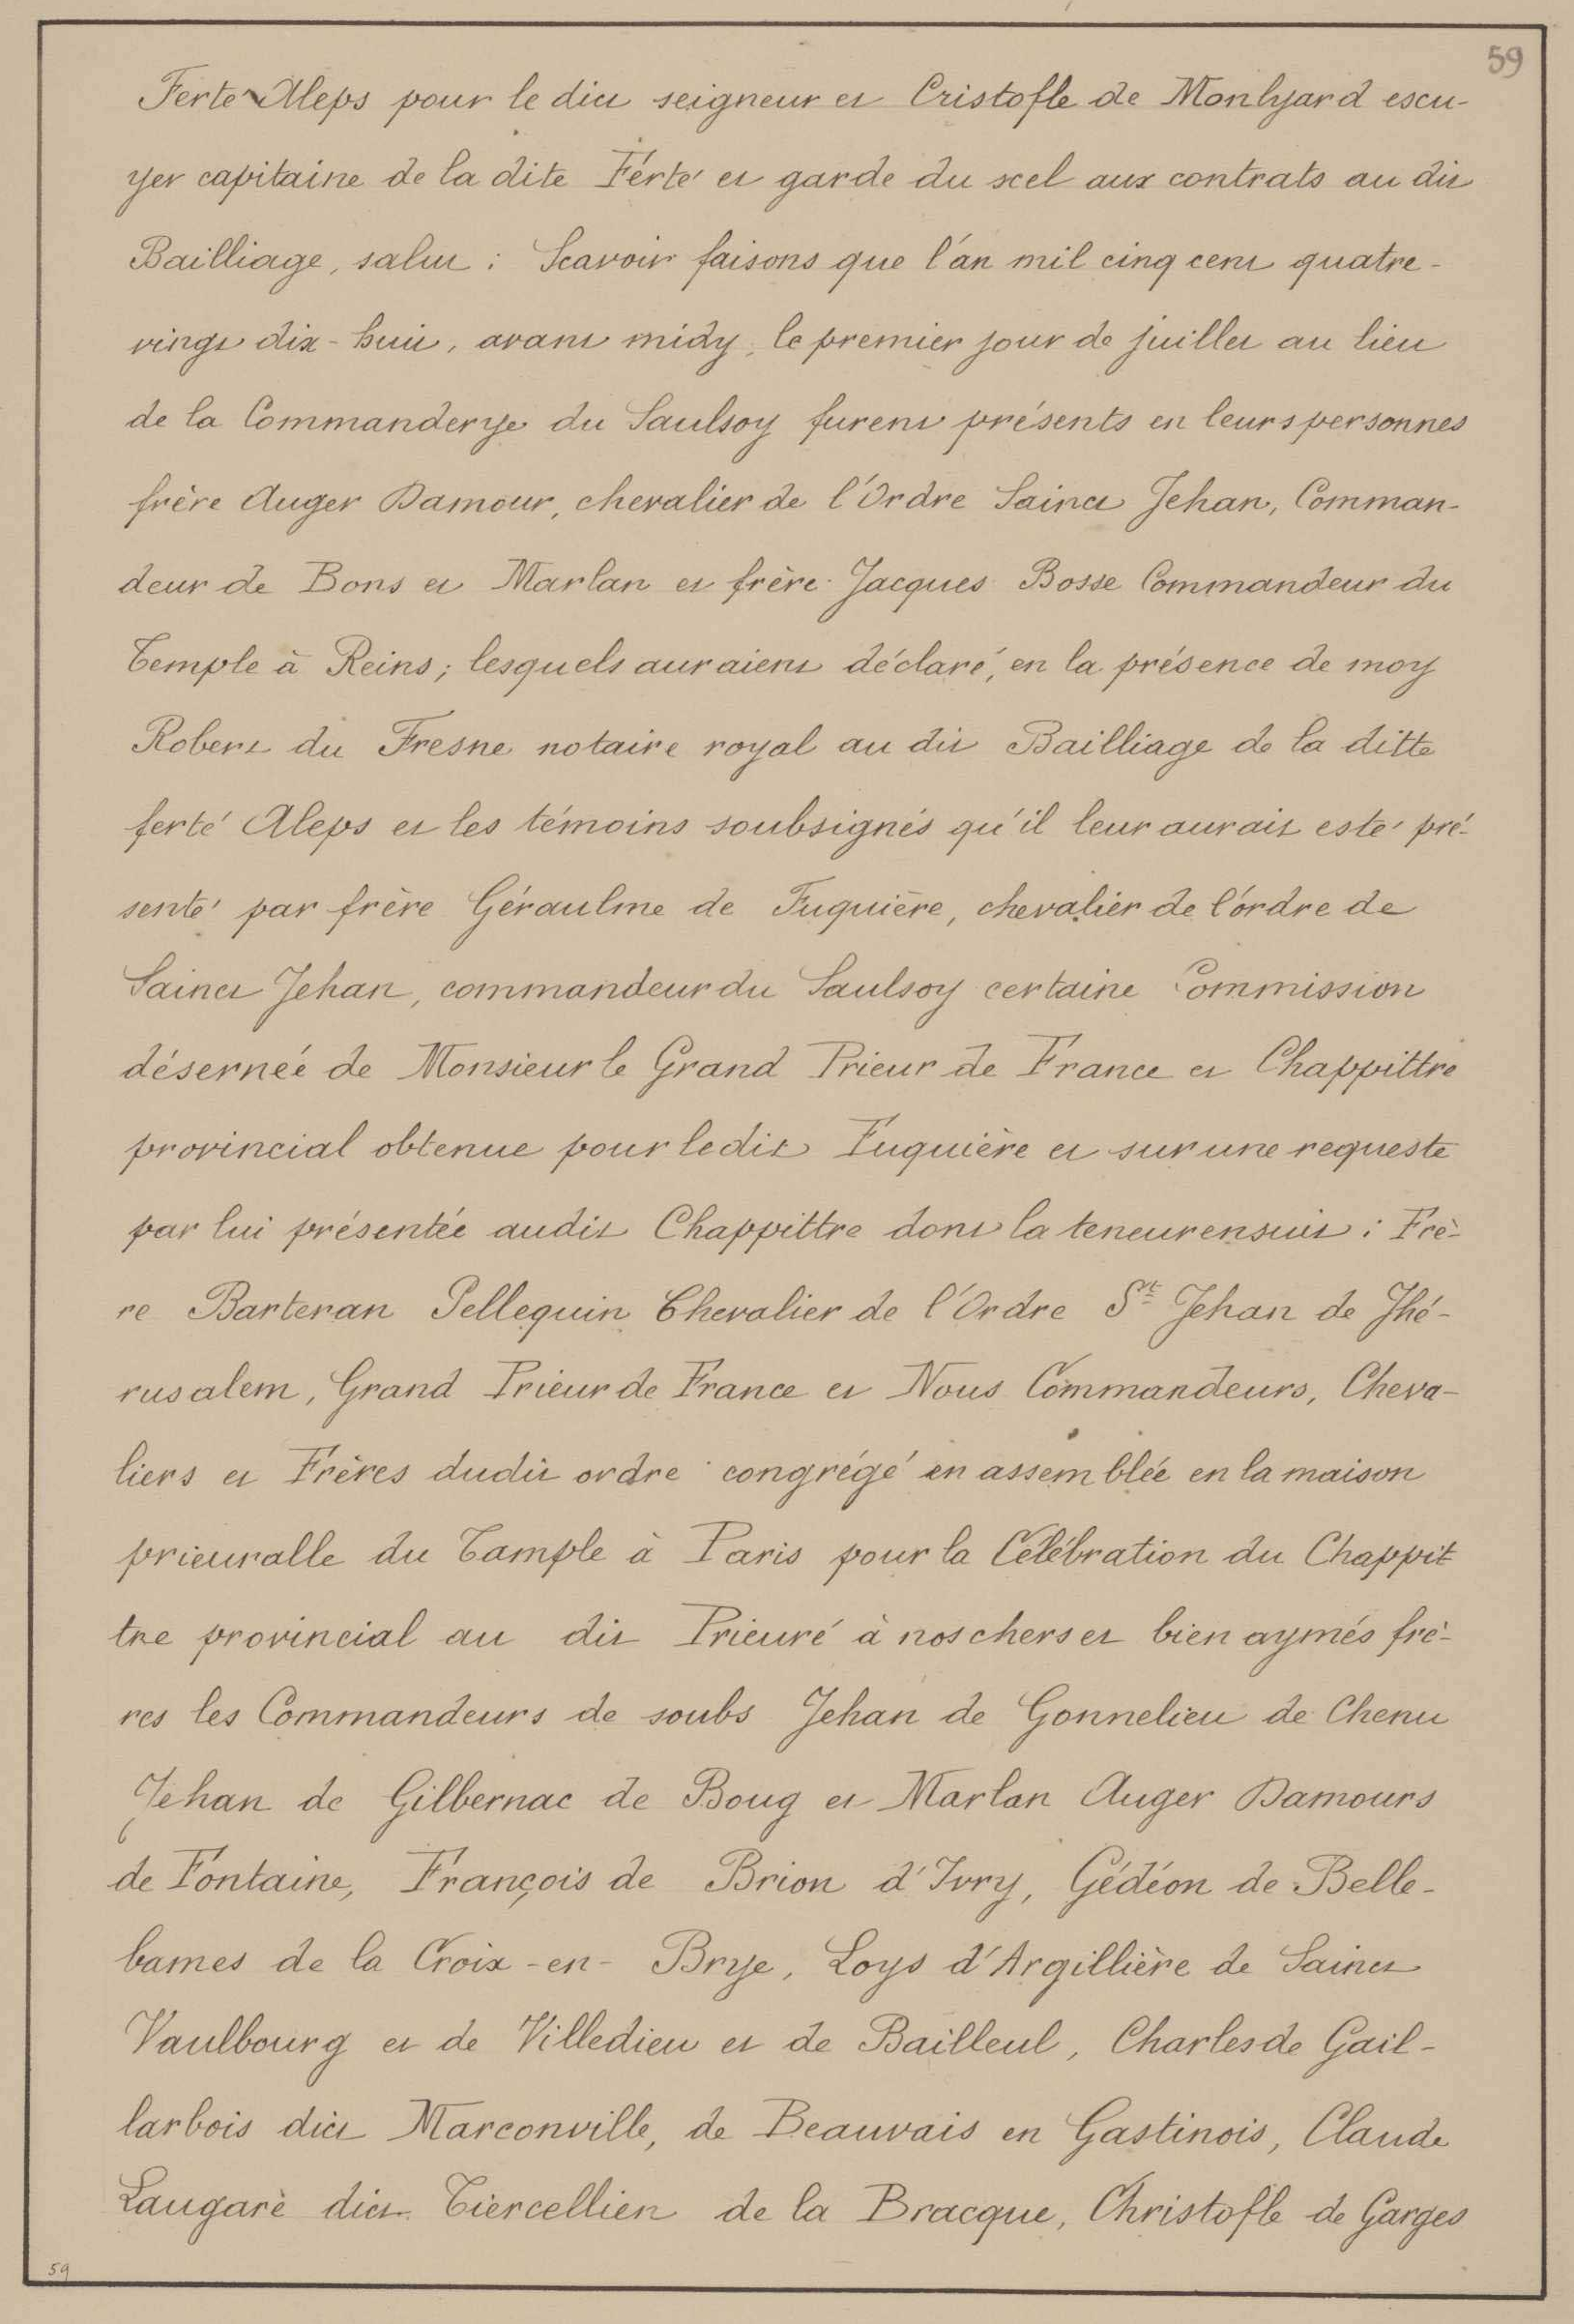 59
Ferté Aleps pour le dict seigneur et Cristofle de Monlyard escu-
yer capitaine de la dite Ferté et garde du scel aux contrats au dit
Bailliage, salut : Scavoir faisons que l'an mil cinq cent quatre-
vingt dix-huit, avant midy, le premier jour de juillet au lieu
de la Commanderye du Saulsoy furent présents en leurs personnes
frère Auger Damour, chevalier de l'Ordre Sainct Jehan, Comman-
deur de Bons et Marlan et frère Jacques Bosse Commandeur du
Temple à Reins ; lesquels auraient déclaré, en la présence de moy
Robert du Fresne notaire royal au dit Bailliage de la ditte
ferté Aleps et les témoins soubsignés qu'il leur aurait esté pré-
senté par frère Géraulme de Fuquière, chevalier de l'ordre de
Sainct Jehan, commandeur du Saulsoy certaine Commission
désernéé de Monsieur le Grand Prieur de France et Chappittre
provincial obtenue pour ledit Fuquière et sur une requeste
par lui présentée audit Chappittre dont la teneur ensuit : Frè-
re Barteran Pellequin Chevalier de l'Ordre St Jehan de Jhé-
rusalem, Grand Prieur de France et Nous Commandeurs, Cheva-
liers et Frères dudit ordre congrégé en assemblée en la maison
prieuralle du Tample à Paris pour la Célébration du Chappit
tre provincial au dit Prieuré à nos chers et bien aymés frè-
res les Commandeurs de soubs Jehan de Gonnelieu de Chenu
Jehan de Gilbernac de Boug et Marlan Auger Damours
de Fontaine, François de Brion d'Ivry, Gédéon de Belle-
bames de la Croix-en-Brye, Loys d'Argillière de Sainct
Vaulbourg et de Villedieu et de Bailleul, Charles de Gail-
larbois dict Marconville, de Beauvais en Gastinois, Claude
Laugarè dict Tiercellien de la Bracque, Christofle de Garges
59